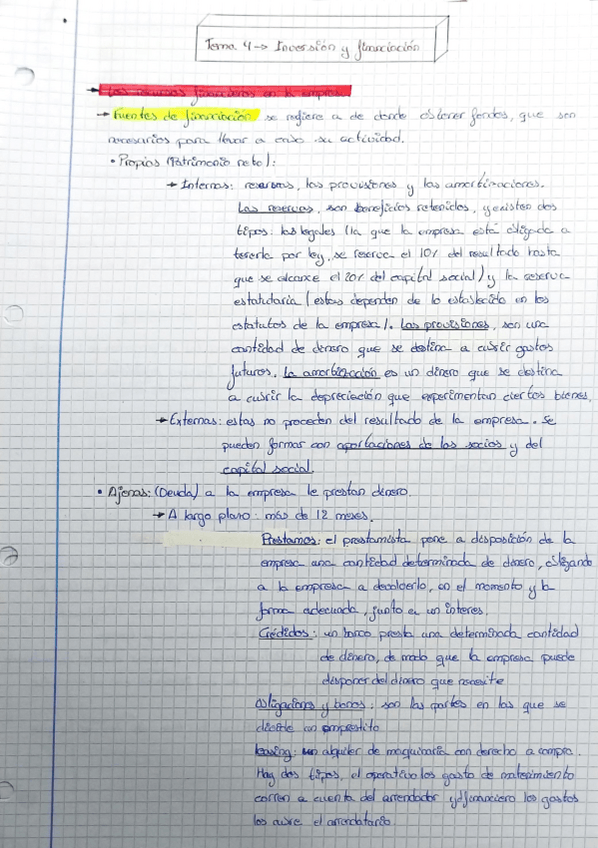 Tema 4 → Inversión y financiación
→ Los recursos financieros en la empresa
→ Fuentes de financiación se refiere a de donde obtener fondos, que son
necesarios para llevar a cabo su actividad.
• Propias (Patrimonio neto):
→ Internas: reservas, las provisiones y las amortizaciones.
Las reservas, son beneficios retenidos, y existen dos
tipos: las legales (la que la empresa está obligada a
tenerla por ley, se reserva el 10% del resultado hasta
que se alcance el 20% del capital social) y la reserva
estatutaria (estas dependen de lo establecido en los
estatutos de la empresa). Las provisiones, son una
cantidad de dinero que se destina a cubrir gastos
futuros. La amortización es un dinero que se destina
a cubrir la depreciación que experimentan ciertos bienes.
→ Externas: estas no proceden del resultado de la empresa. Se
pueden formar con aportaciones de los socios y del
capital social.
• Ajenas: (Deuda) a la empresa le prestan dinero.
→ A largo plazo: más de 12 meses.
Prestamos: el prestamista pone a disposición de la
empresa una cantidad determinada de dinero, obligando
a la empresa a devolverlo, en el momento y la
forma adecuada, junto a un interes.
Créditos: un banco presta una determinada cantidad
de dinero, de modo que la empresa puede
disponer del dinero que necesite
Obligaciones y bonos: son las partes en las que se
divide un emprestito
leasing: un alquiler de maquinaria con derecho a compra.
Hay dos tipos, el operativo los gasto de mantenimiento
corren a cuenta del arrendador y el financiero los gastos
los cubre el arrendatario.